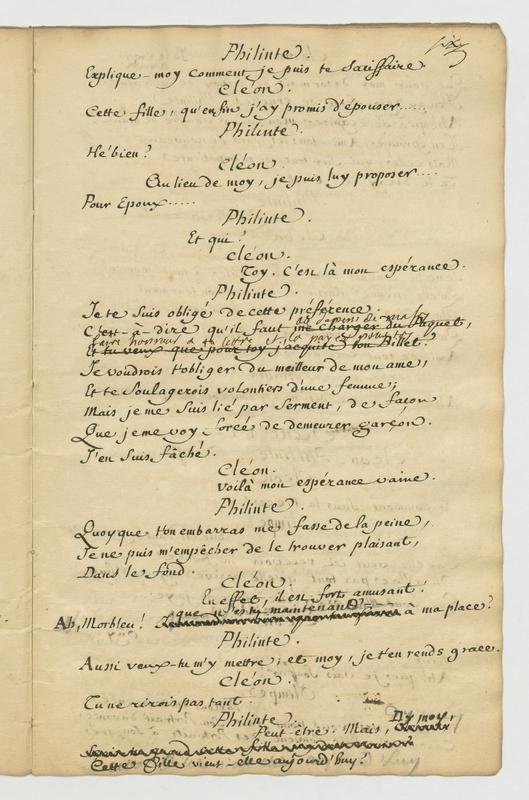 six
Philinte.
Explique-moy comment je puis te satisffaire.
Cléon.
Cette fille, qu'enfin j'ay promis d'épouser.....
Philinte.
Hé bien?
Cléon.
Au lieu de moy, je puis luy proposer....
Pour Epoux.....
Philinte.
Et qui?
Cléon.
Toy. C'est là mon espérance.
Philinte.
Je te suis obligé de cette préférence.
C'est-à-dire qu'il faut me charger du Paquet,
faire honneur à ta lettre et la payer
Et tu veux que pour toy j'acquite ton Billet?
Je voudrois t'obliger du meilleur de mon ame,
Et te soulagerois volontiers d'une femme;
Mais je me suis lié par serment, de façon
Que je me voy forcé de demeurer garçon.
J'en suis fâché.
Cléon.
Voilà mon espérance vaine.
Philinte.
Quoyque ton embarras me fasse de la peine,
Je ne puis m'empêcher de le trouver plaisant,
Dans le fond.
Cléon.
En effet, il est fort amusant.
que n'es tu maintenant
Ah, Morbleu! à ma place?
Philinte.
Aussi veux-tu m'y mettre; et moy, je t'en rends grace.
Cléon.
Tu ne rirois pas tant.
Philinte.
Dy moy,
Peut-être. Mais,
Cette Fille vient-elle aujourd'huy?